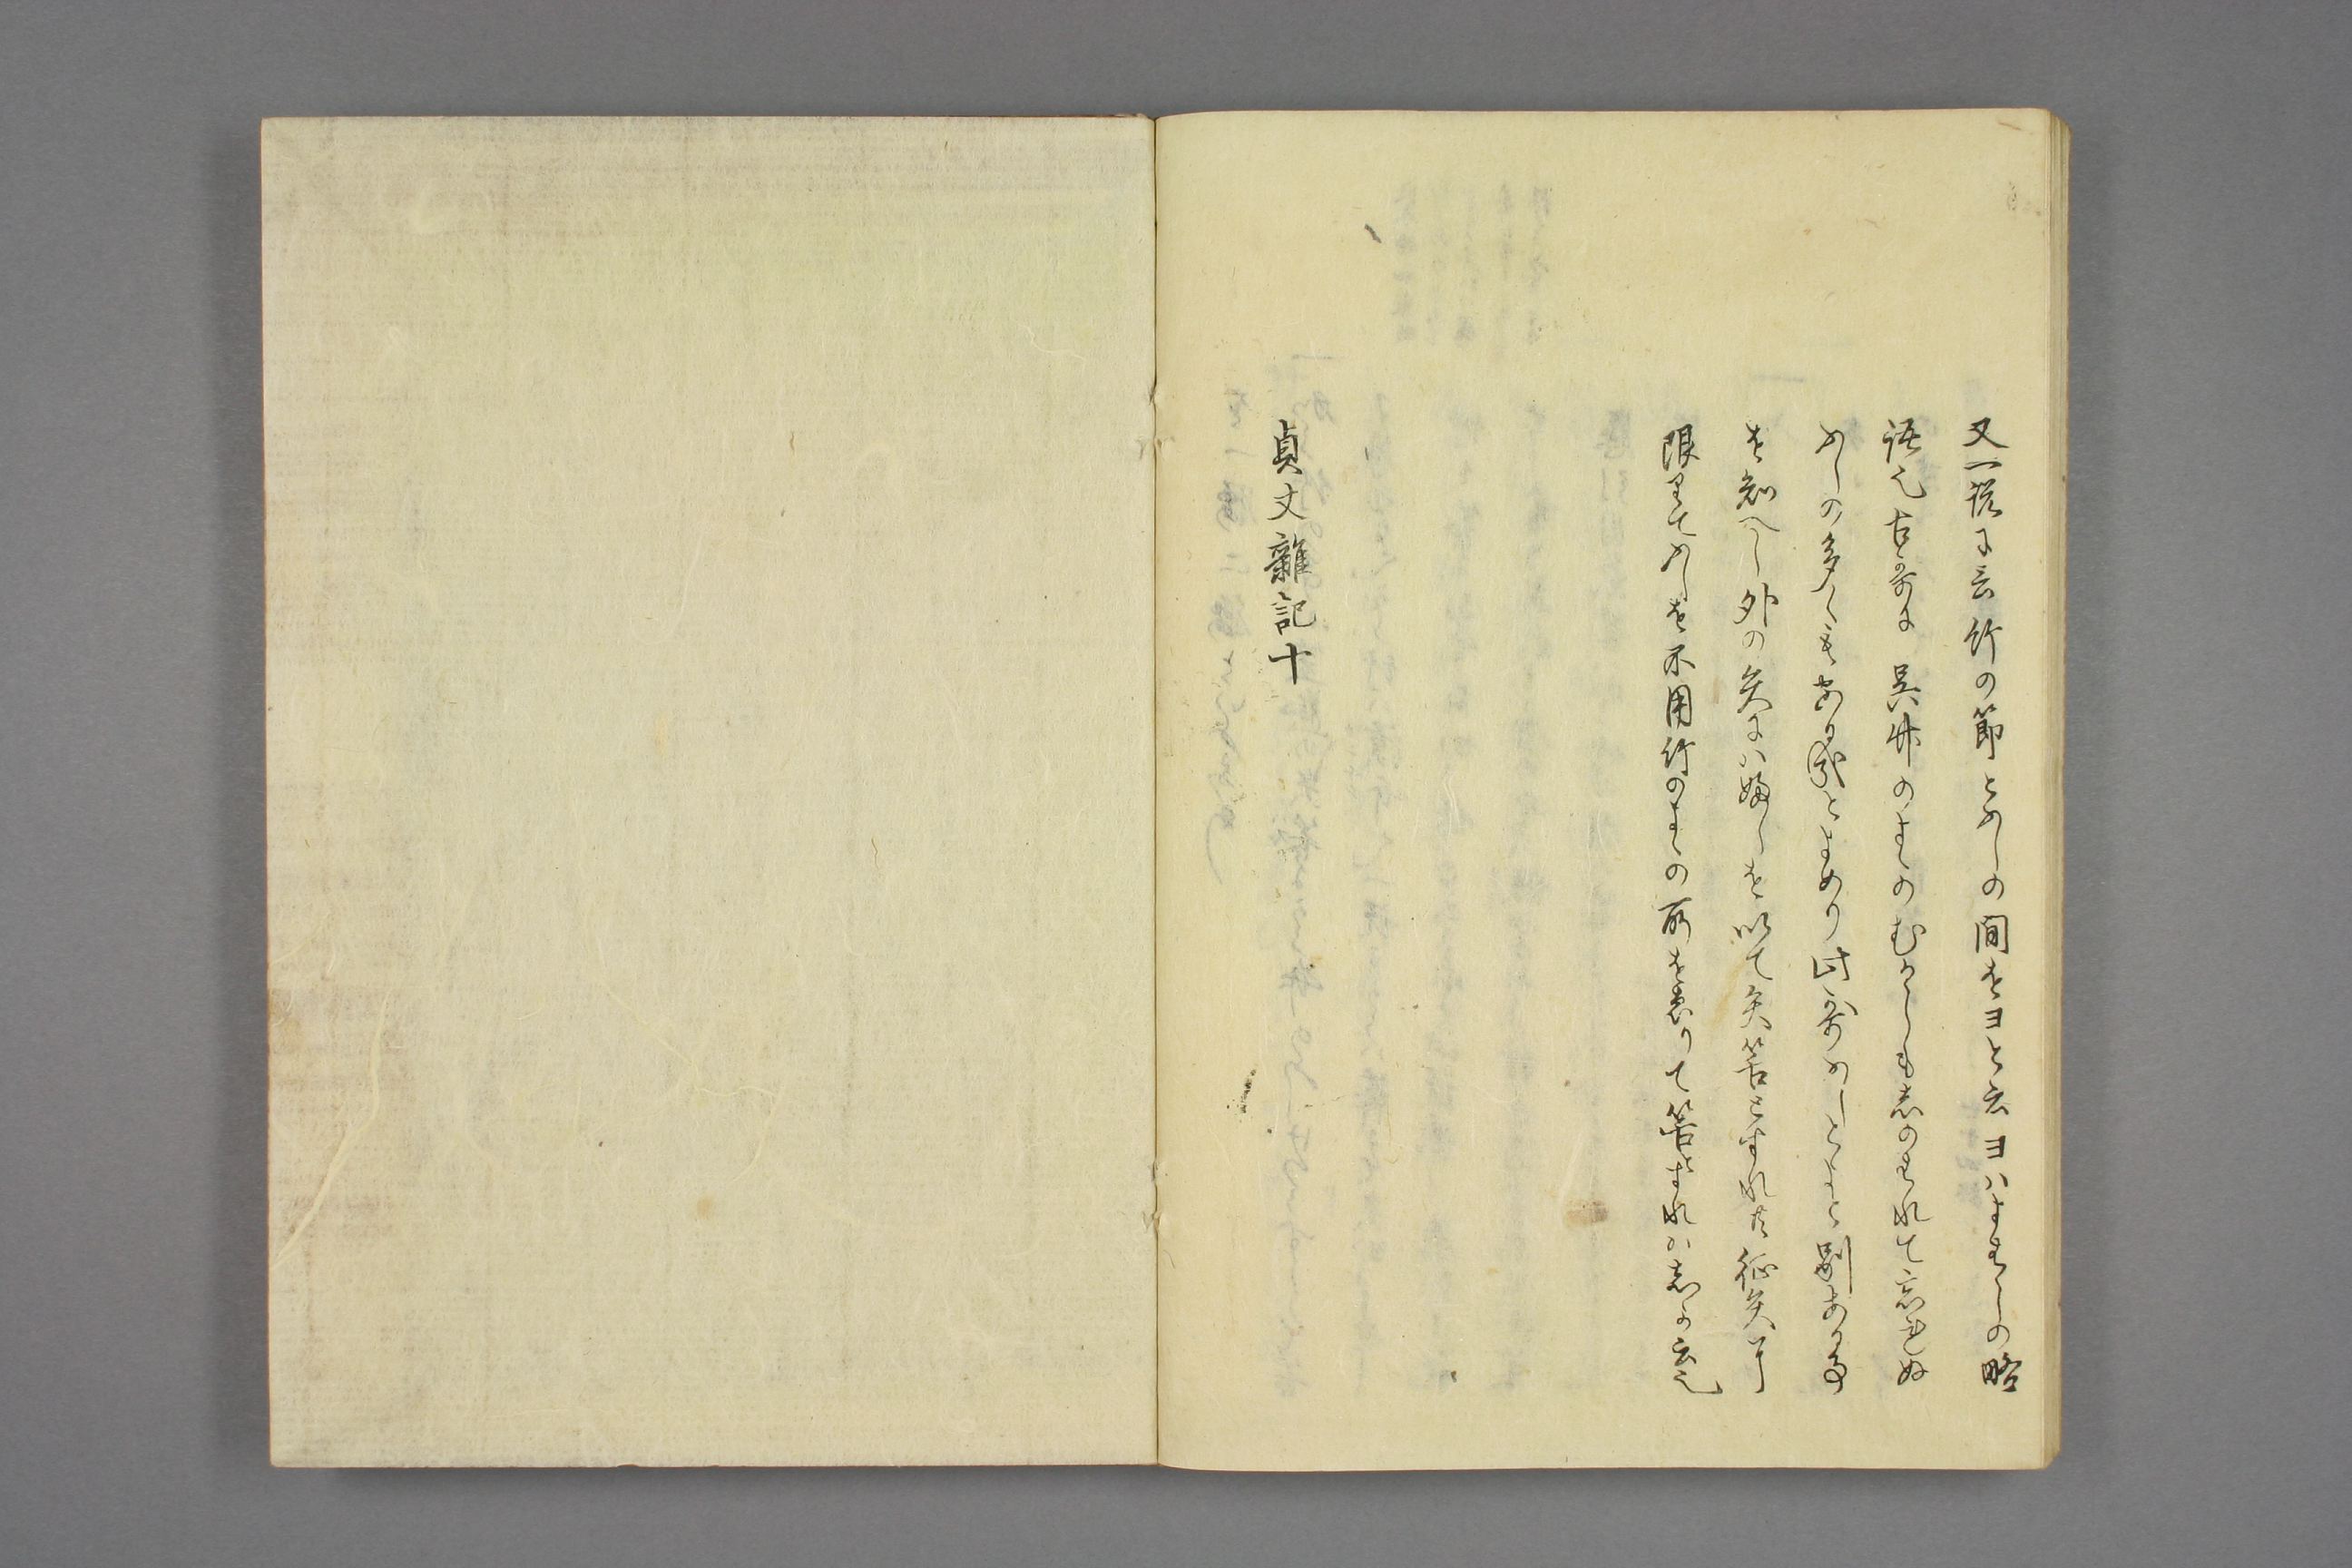 又一説に云竹の節とふしの間をヨと云ヨハよましの略
語也古哥に呉竹のよゝのむかしも志のまれて忘れぬ
ふしの多くもあり哉とよめり此哥ふしとよと別ある事
を知へし外の矢にハ婦しを以て矢筈とすれ共征矢に
限りてふしを不用竹のよゝの所をゑりて筈とすれハ志か云也
貞丈雜記十